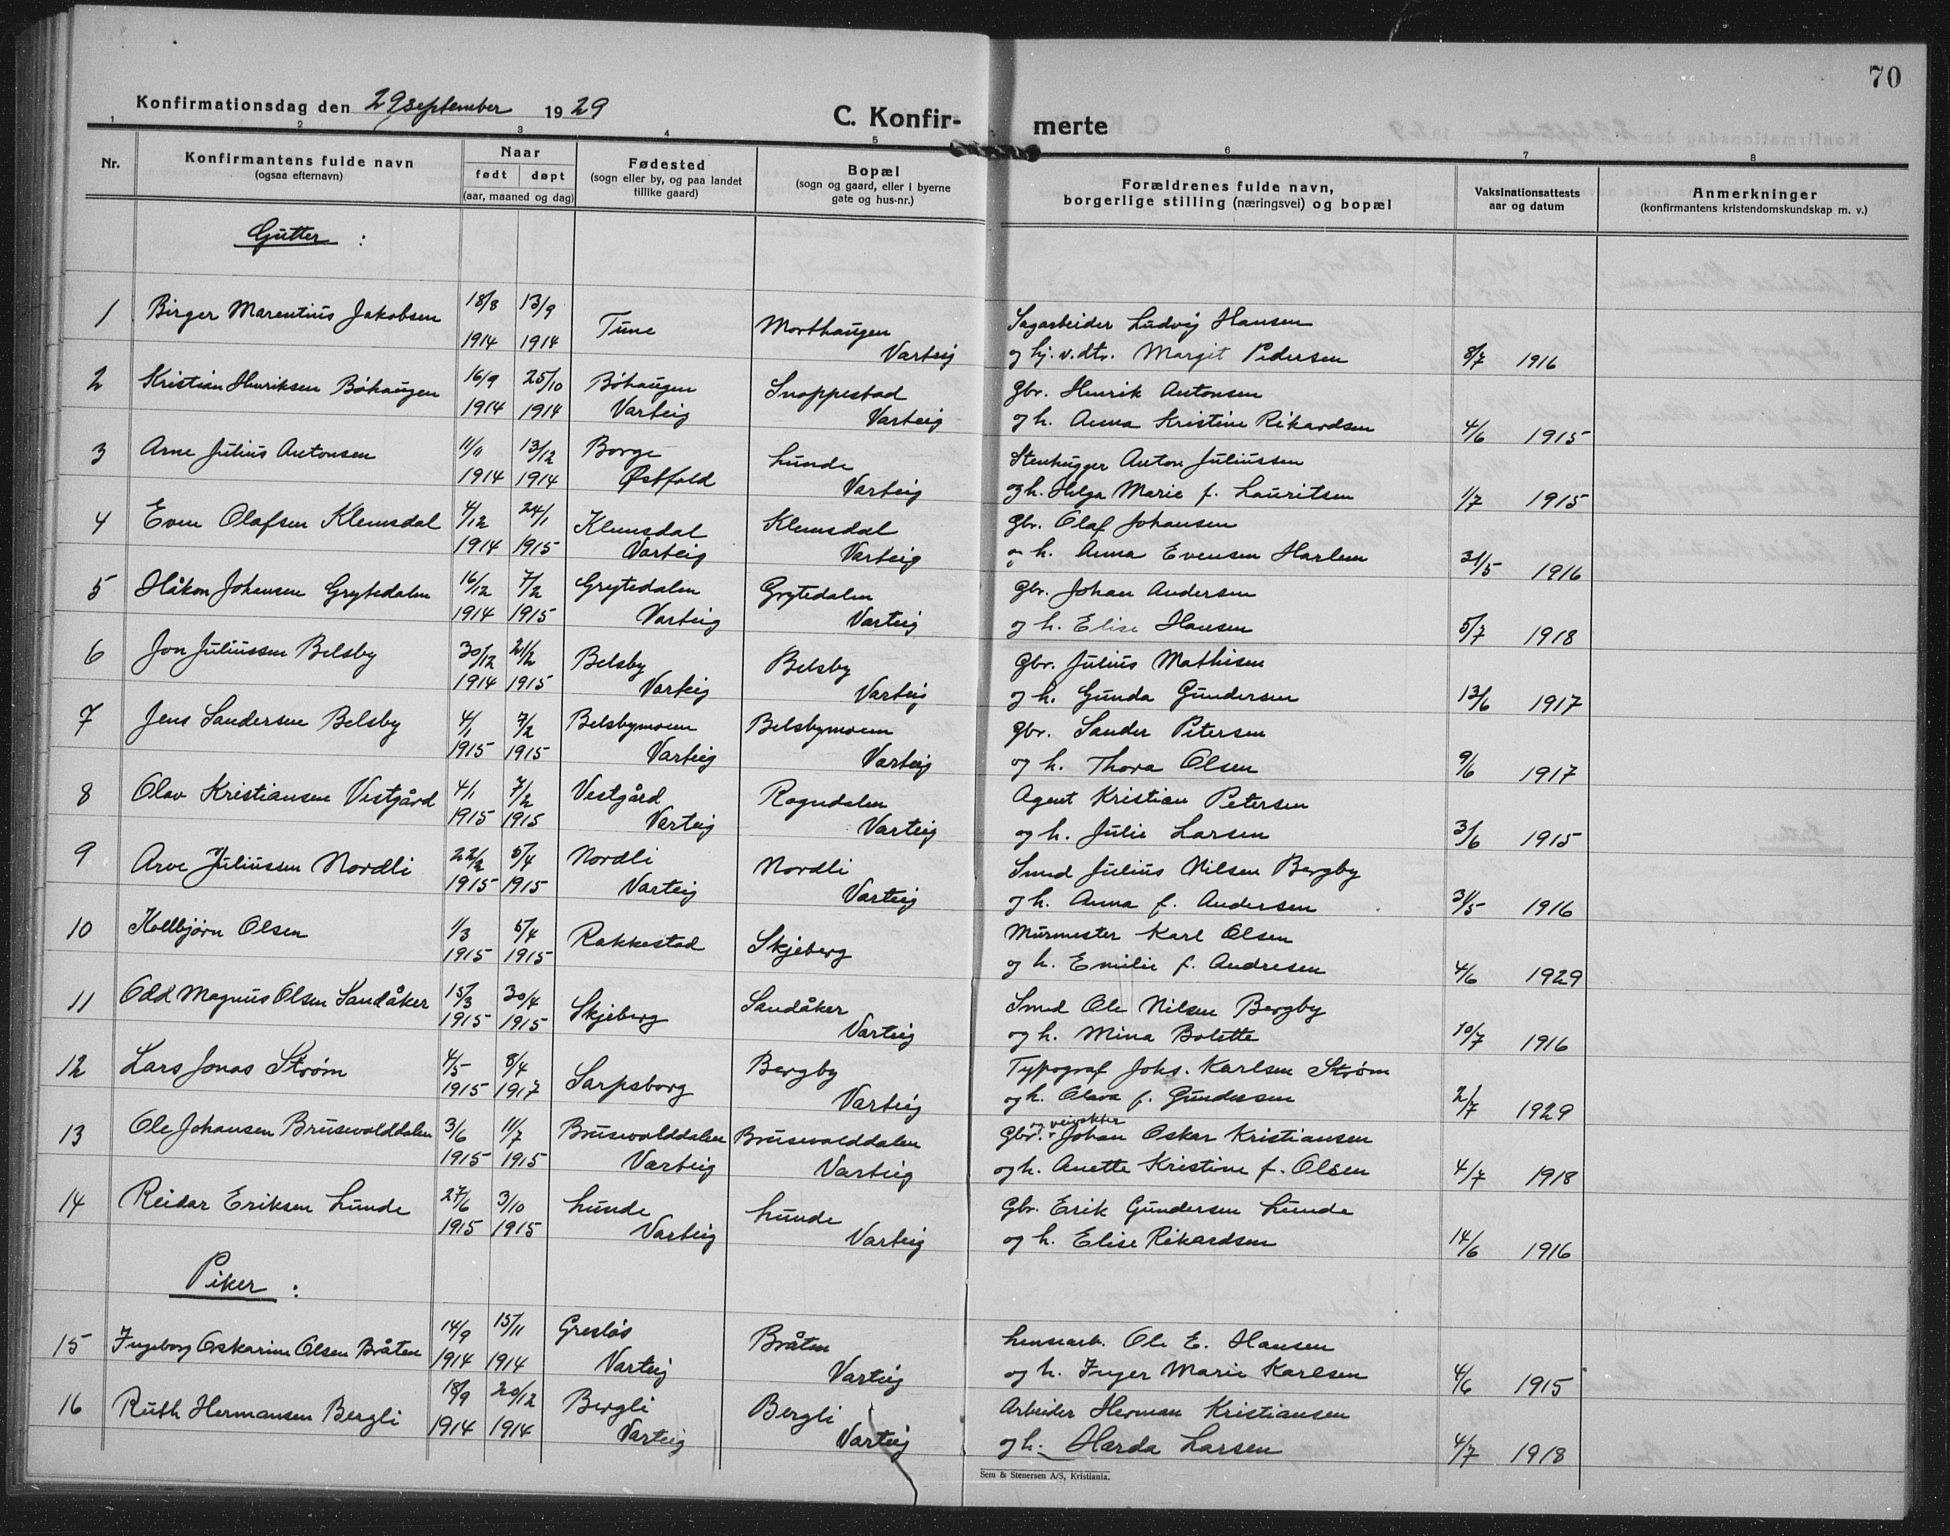 70
Konfirmationsdag den 29 september 1929
C. Konfir- merte
1 2 3 4 5 6 7 8
Nr. Konfirmantens fulde navn (ogsaa efternavn) Naar født døpt (aar, maaned og dag) Fødested (sogn eller by, og paa landet tillike gaard) Bopæl (sogn og gaard, eller i byerne gate og hus-nr.) Forældrenes fulde navn, borgerlige stilling (næringsvei) og bopæl Vaksinationsattests aar og datum Anmerkninger (konfirmantens kristendomskundskap m. v.)
Gutter :
1 Birger Marentius Jakobsen 18/8 13/9 Tune Morthaugen Sagarbeider Ludvig Hansen
1914 1914 Varteig og hj. v. dtr. Margit Pedersen 8/7 1916
2 Kristian Henriksen Bøhaugen 16/9 25/10 Bøhaugen Snoppestad Gbr. Henrik Antonsen
1914 1914 Varteig Varteig og h. Anna Kristine Rikardsen 4/6 1915
3 Arne Julius Antonsen 11/11 13/12 Borge Lunde Stenhugger Anton Juliussen
1914 1914 Østfold Varteig og h. Helga Marie f. Lauritsen 1/7 1915
4 Even Olafsen Klemsdal 4/12 24/1 Klemsdal Klemsdal Gbr. Olaf Johansen
1914 1915 Varteig Varteig og h. Anna Evensen Harlem 31/5 1916
5 Håkon Johansen Grytedalen 16/12 7/2 Grytedalen Grytedalen Gbr. Johan Andersen
1914 1915 Varteig Varteig og h. Elise Hansen 5/7 1918
6 Jon Juliussen Belsby 30/12 21/2 Belsby Belsby Gbr. Julius Mathisen
1914 1915 Varteig Varteig og h. Gunda Gundersen 13/6 1917
7 Jens Sandersen Belsby 4/1 7/2 Belsbymoen Belsbymoen Gbr. Sander Petersen
1915 1915 Varteig Varteig og h. Thora Olsen 9/6 1917
8 Olav Kristiansen Vestgård 4/1 7/2 Vestgård Rogndalen Agent Kristian Petersen
1915 1915 Varteig Varteig og h. Julie Larsen 3/6 1915
9 Arve Juliussen Nordli 22/2 5/4 Nordli Nordli Smed Julius Nilsen Bergby
1915 1915 Varteig Varteig og h. Anna f. Andersen 31/5 1916
10 Kolbjørn Olsen 1/3 5/4 Rakkestad Skjeberg Murmester Karl Olsen
1915 1915 og h. Emilie f. Andresen 4/6 1929
11 Odd Magnus Olsen Sandåker 15/3 30/4 Skjeberg Sandåker Smed Ole Nilsen Bergby
1915 1915 Varteig og h. Mina Bolette 10/7 1916
12 Lars Jonas Strøm 4/5 8/4 Sarpsborg Bergby Typograf Johs. Karlsen Strøm
1915 1917 Varteig og h. Olava f. Gundersen 2/7 1929
13 Ole Johansen Brusevolddalen 3/6 11/7 Brusevolddalen Brusevolddalen Gbr. og veivokter Johan Oskar Kristiansen
1915 1915 Varteig Varteig og h. Anette Kristine f. Olsen 4/7 1918
14 Reidar Eriksen Lunde 27/6 3/10 Lunde Lunde Gbr. Erik Gundersen Lunde
1915 1915 Varteig Varteig og h. Elise Rikardsen 14/6 1916
Piker :
15 Ingeborg Oskarine Olsen Bråten 14/9 15/11 Gresløs Bråten Lensearb. Ole E. Hansen
1914 1914 Varteig Varteig og h. Inger Marie Karlsen 4/6 1915
16 Ruth Hermansen Bergli 18/9 20/12 Bergli Bergli Arbeider Herman Kristiansen
1914 1914 Varteig Varteig og h. Harda Larsen 4/7 1918
Sem & Stenersen A/S, Kristiania.